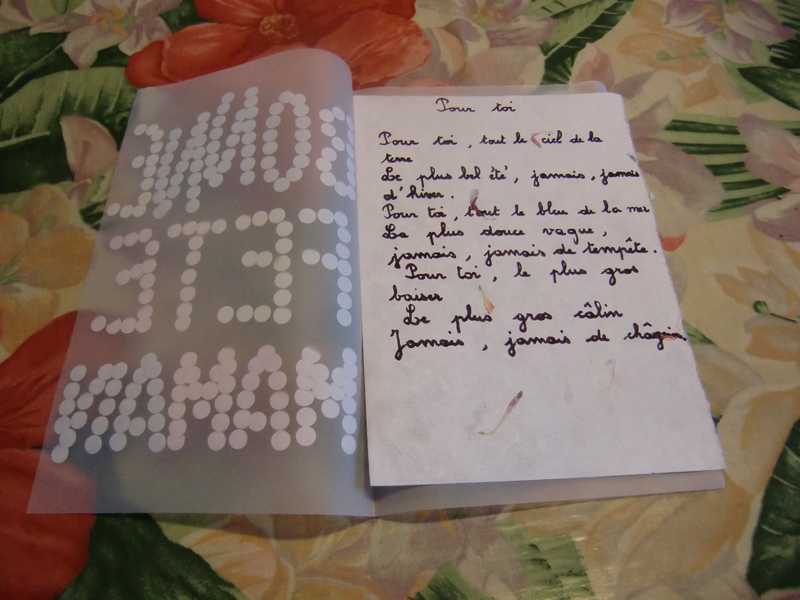 BONNE
FETE
MAMAN
Pour toi
Pour toi, tout le ciel de la
terre
Le plus bel été, jamais, jamais
d'hiver.
Pour toi, tout le bleu de la mer
La plus douce vague,
jamais, jamais de tempête.
Pour toi, le plus gros
baiser
Le plus gros câlin
Jamais, jamais de châgrin.